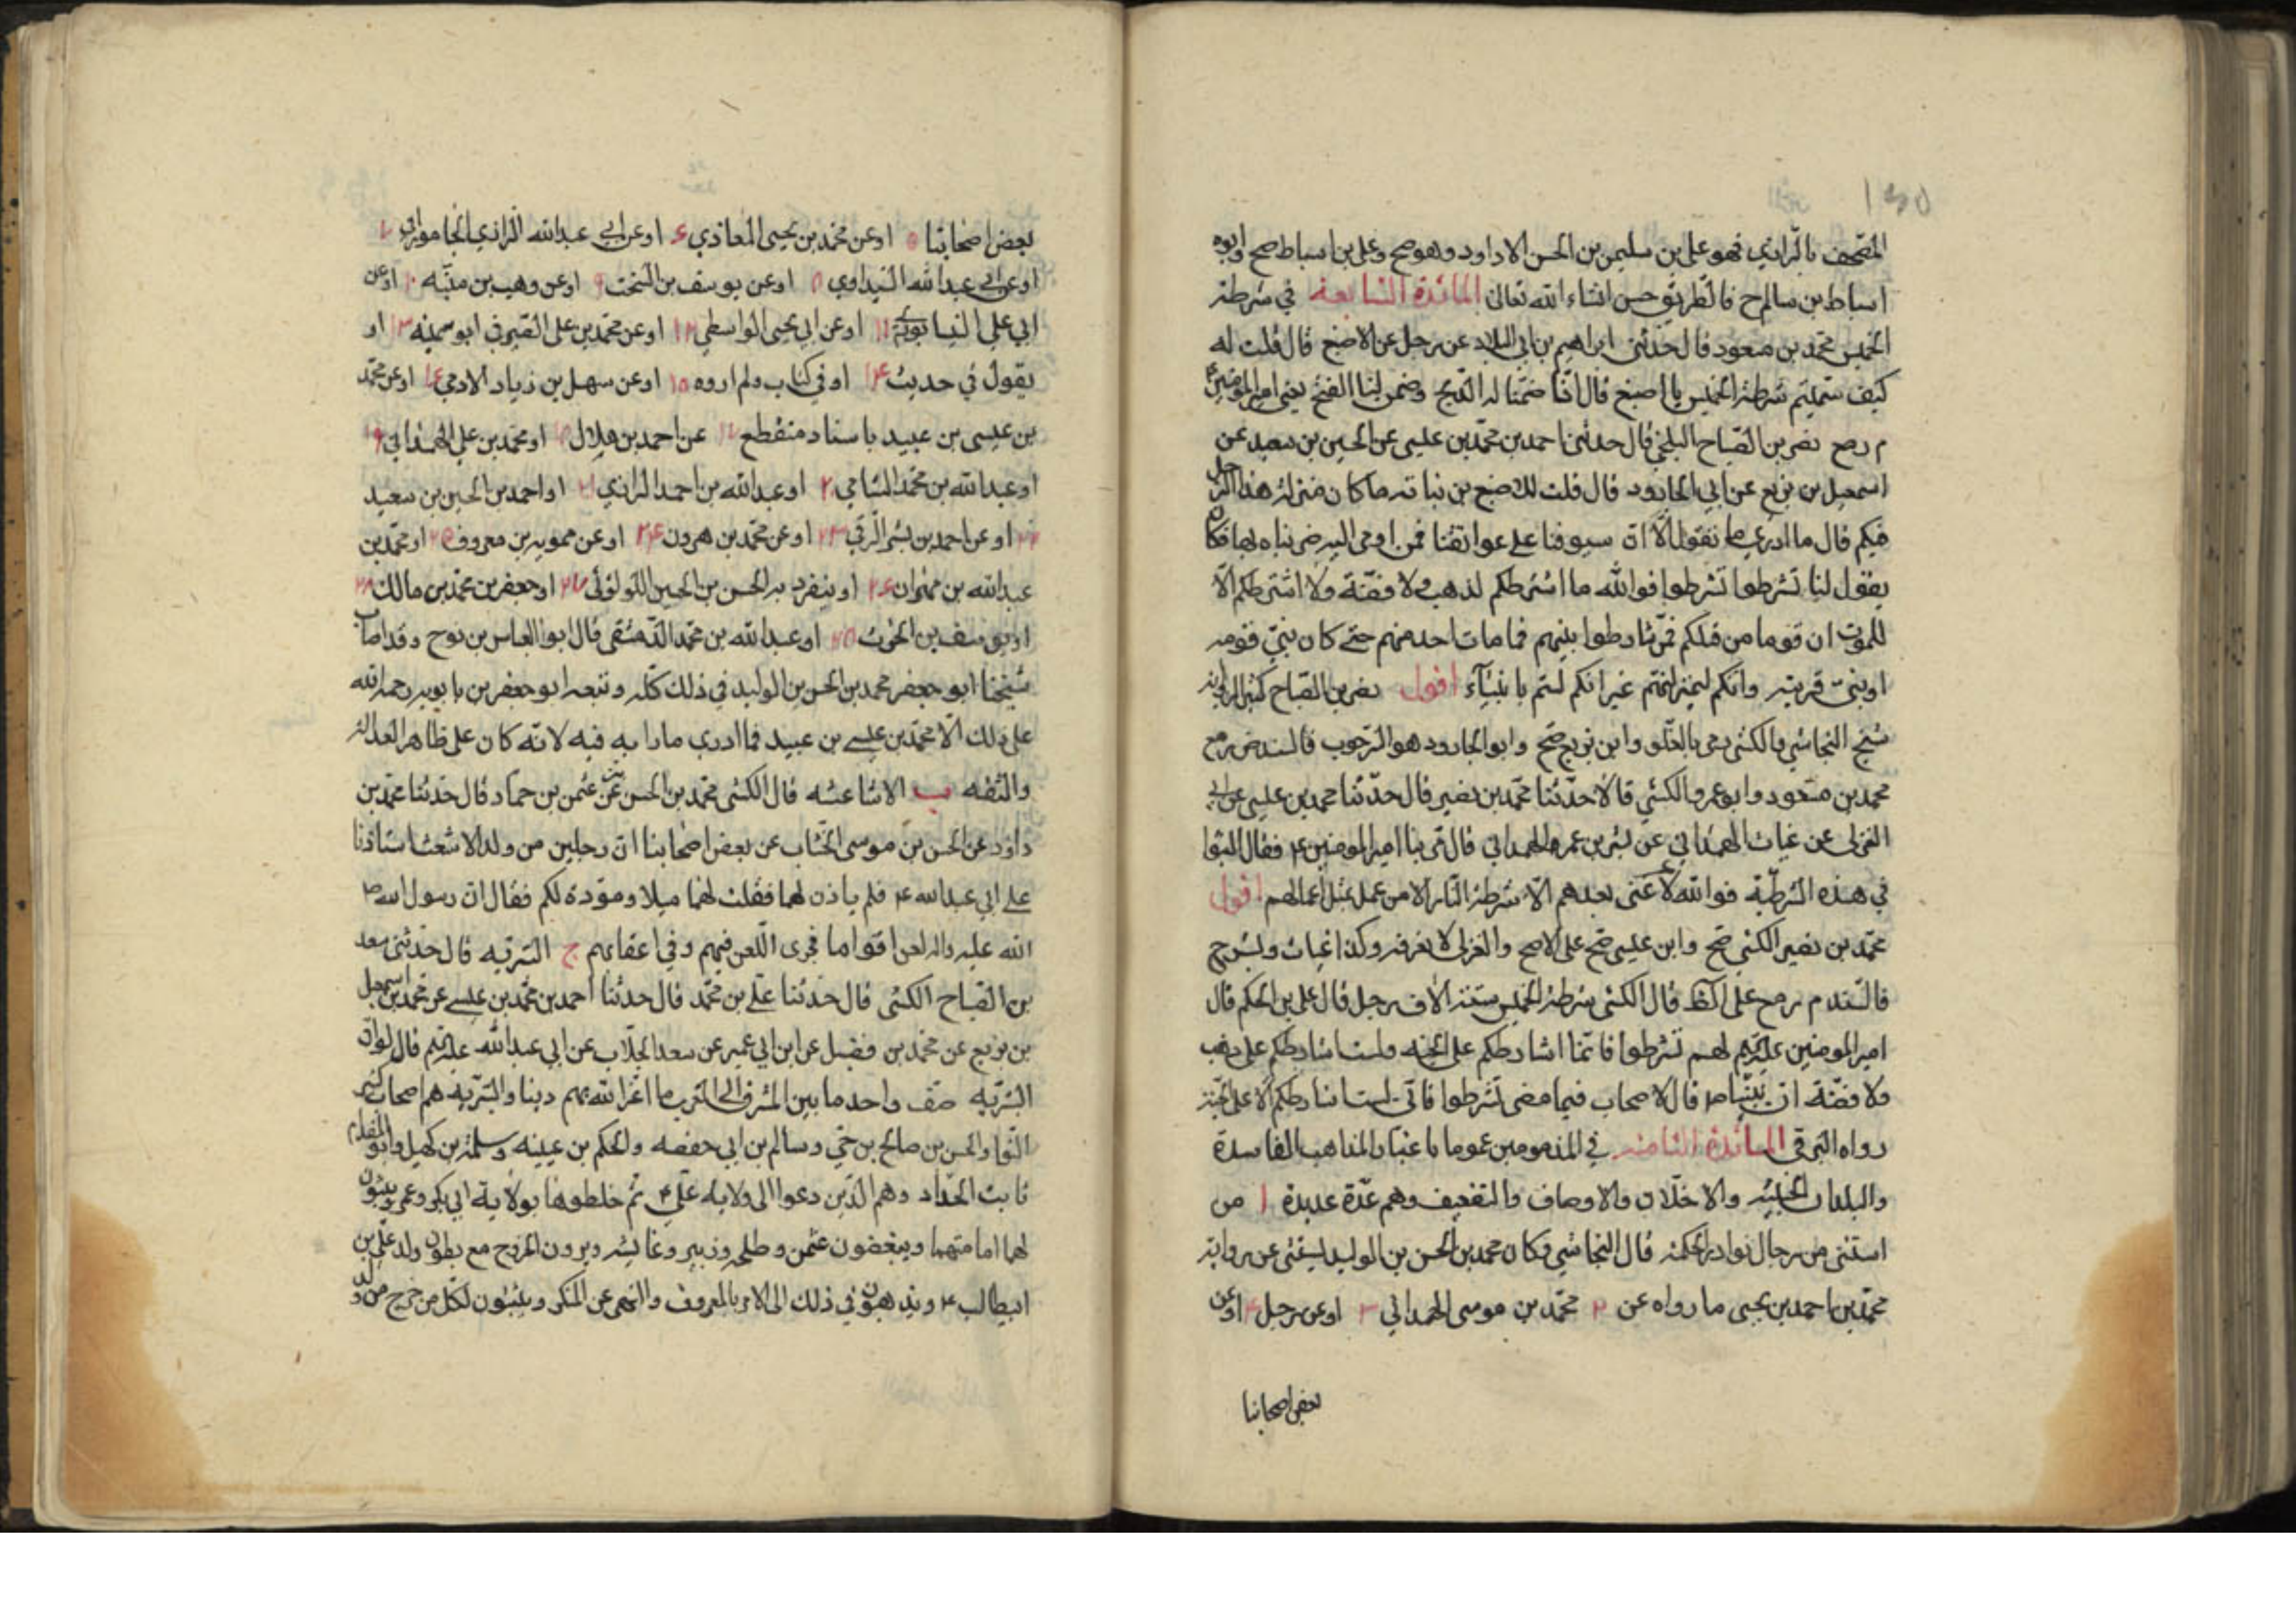 ١٣٥
المصحف بالرازي فهو علي بن سليمن بن الحسن الا داود وهو صح وعلي بن اسباط صح وابوه
اسباط بن سالم ح فالطريق حسن انشاء الله تعالى المائدة السابعة في شرطة
الخميس محمد بن مسعود قال حدثنى ابراهيم بن ابي البلاد عن رجل عن الاصبغ قال قلت له
كيف سميتم شرطة الخميس يا اصبغ قال انا ضمنا له الذبح وضمن لنا الفتح يعنى امير المؤمنين ع
م رمح نصر بن الصباح البلخي قال حدثنا احمد بن محمد بن عيسى عن الحسين بن سعيد عن
اسمعيل بن بزيع عن ابي الجارود قال قلت للاصبغ بن نباته ما كان منزلة هذا الرجل
فيكم قال ما ادري ما نقول الا ان سيوفنا على عواتقنا فمن اومى اليه ضربناه بها فكان
يقول لنا تشرطوا تشرطوا فوالله ما اشتراطكم لذهب ولا فضة ولا اشتراطكم الا
للموت ان قوما من قبلكم تشارطوا بينهم فما مات احد منهم حتى كان نبى قومه
او نبى قريته وانكم لبمنزلتهم غير انكم لستم بانبياء اقول نصر بن الصباح كثير الرواية
شيخ النجاشي بالكشي رمى بالغلو وابن بزيع صح وابو الجارود هو السرحوب فالسند ض رمح
محمد بن مسعود وابو عمرو الكشي قالا حدثنا محمد بن نصير قال حدثنا محمد بن عيسى عن ابي
الغزلى عن غياث الهمداني عن بشر بن عمرو الهمداني قال مر بنا امير المومنين ع فقال اثبتوا
في هذه الشرطة فوالله لا غنى بعدهم الا شرطة النار الا من عمل بمثل اعمالهم اقول
محمد بن نصير الكشي صح وابن عيسى صح على الاصح والغزلى لا يعرفه وكذا غياث وبشر ح
فالسند م رمح على الظ قال الكشي شرطة الخميس ستة الاف رجل قال علي بن الحكم قال
امير المومنين عليه السلام لهم تشرطوا فانما اشارطكم على الجنه ولست اشارطكم على ذهب
ولا فضة ان نبينا ص قال لاصحاب فيما مضى تشرطوا فاني لست اشارطكم الا على الجنة
رواه البرقى المائدة الثامنه في المذمومين عموما باعتبار المذاهب الفاسدة
والبلدان الخبيثه والاخلاق والاوصاف والتضعيف وهم عدة عديدة ا من
استثنى من رجال نوادر الحكمة قال النجاشي وكان محمد بن الحسن بن الوليد يستثنى عن رواية
محمد بن احمد بن يحيى ما رواه عن ٢ محمد بن موسى الهمداني ٣ او عن رجل ٤ او عن
بعض اصحابنا
بعض اصحابنا ٥ او عن محمد بن يحيى المعاذي ٦ او عن ابي عبد الله الرازي الجاموراني ٧
او عن ابي عبد الله السياري ٨ او عن يوسف بن السخت ٩ او عن وهب بن منبه ١٠ او عن
ابي علي النيسابوري ١١ او عن ابي يحيى الواسطي ١٢ او عن محمد بن علي الصيرفي ابو سمينه ١٣ او
يقول في حديث ١٤ او في كتاب ولم اروه ١٥ او عن سهل بن زياد الادمي ١٦ او عن محمد
بن عيسى بن عبيد باسناد منقطع ١٧ عن احمد بن هلال ١٨ او محمد بن علي الهمداني ١٩
او عبد الله بن محمد الشامي ٢٠ او عبد الله بن احمد الرازي ٢١ او احمد بن الحسين بن سعيد
٢٢ او عن احمد بن بشر الرقي ٢٣ او عن محمد بن هرون ٢٤ او عن ممويه بن معروف ٢٥ او محمد بن
عبد الله بن مهران ٢٦ او ينفرد به الحسن بن الحسين اللؤلؤئى ٢٧ او جعفر بن محمد بن مالك ٢٨
او يوسف بن الحرث ٢٥ او عبد الله بن محمد الدمشقى قال ابو العباس بن نوح وقد اصاب
شيخنا ابو جعفر محمد بن الحسن بن الوليد في ذلك كله وتبعه ابو جعفر بن بابويه رحمه الله
على ذلك الا محمد بن عيسى بن عبيد فما ادري ما رابه فيه لانه كان على ظاهر العدالة
والثقه ب الاشاعثه قال الكشى محمد بن الحسن عن عثمن بن حماد قال حدثنا محمد بن
داود عن الحسن بن موسى الخشاب عن بعض اصحابنا ان رجلين من ولد الاشعث استاذنا
على ابي عبد الله ع فلم ياذن لهما فقلت لهما ميلا ومودة لكم فقال ان رسول الله ص
الله عليه واله لعن اقواما فجرى اللعن فيهم وفي اعقابهم ج البترقيه قال حدثنى سعد
بن الصباح الكشى قال حدثنا علي بن محمد قال حدثنا احمد بن محمد بن عيسى عن محمد بن اسمعيل
بن بزيع عن محمد بن فضيل عن ابن ابي عمير عن سعد الجلاب عن ابي عبد الله عليه السلم قال لو ان
البتريه صف واحد ما بين المشرق الى المغرب ما اعز الله بهم دينا والبتريه هم اصحاب كثير
النوا والحسن بن صالح بن حي وسالم بن ابي حفصه والحكم بن عيينه وسلمة بن كهيل وابو المقدام
ثابت الحداد وهم الذين دعوا الى ولاية علي ع ثم خلطوها بولاية ابي بكر وعمر ويثبتون
لهما امامتهما ويبغضون عثمن وطلحه وزبير وعايشه ويرون الخروج مع بطون ولد علي بن
ابيطالب ع ويذهبون في ذلك الى الامر بالمعروف والنهى عن المنكر ويثبتون لكل من خرج من ولد